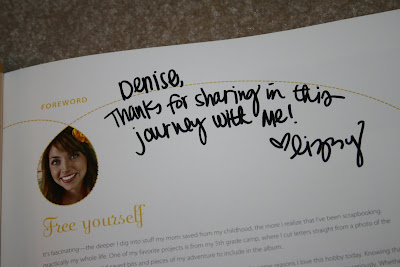 FOREWORD
Denise,
Thanks for sharing in this
journey with Me!
♡lizzy
Free yourself
It's fascinating—the deeper I dig into stuff my mum saved from my childhood, the more I realize that I've been scrapbooking
practically my whole life. One of my favorite projects is from my 5th grade camp, where I cut letters straight from a photo of the
saved bits and pieces of my adventure to include in the album.
reasons I love this hobby today. Knowing tha